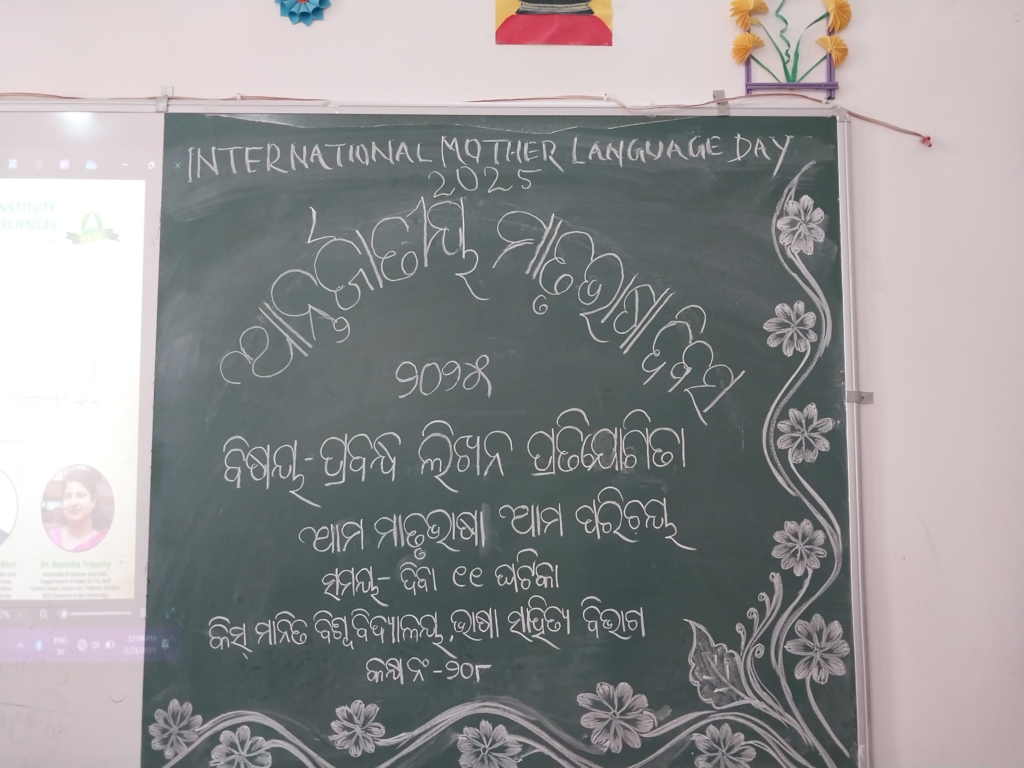 INTERNATIONAL MOTHER LANGUAGE DAY
2025
ଆନ୍ତର୍ଜାତୀୟ ମାତୃଭାଷା ଦିବସ
୨୦୨୫
ବିଷୟ-ପ୍ରବନ୍ଧ ଲିଖନ ପ୍ରତିଯୋଗିତା
ଆମ ମାତୃଭାଷା ଆମ ପରିଚୟ
ସମୟ- ଦିବା ୧୧ ଘଟିକା
କିସ୍ ମାନିତ ବିଶ୍ୱବିଦ୍ୟାଳୟ, ଭାଷା ସାହିତ୍ୟ ବିଭାଗ
କକ୍ଷ ନଂ -୨୦୮
NSTITUTE
SCIENCES
ENG